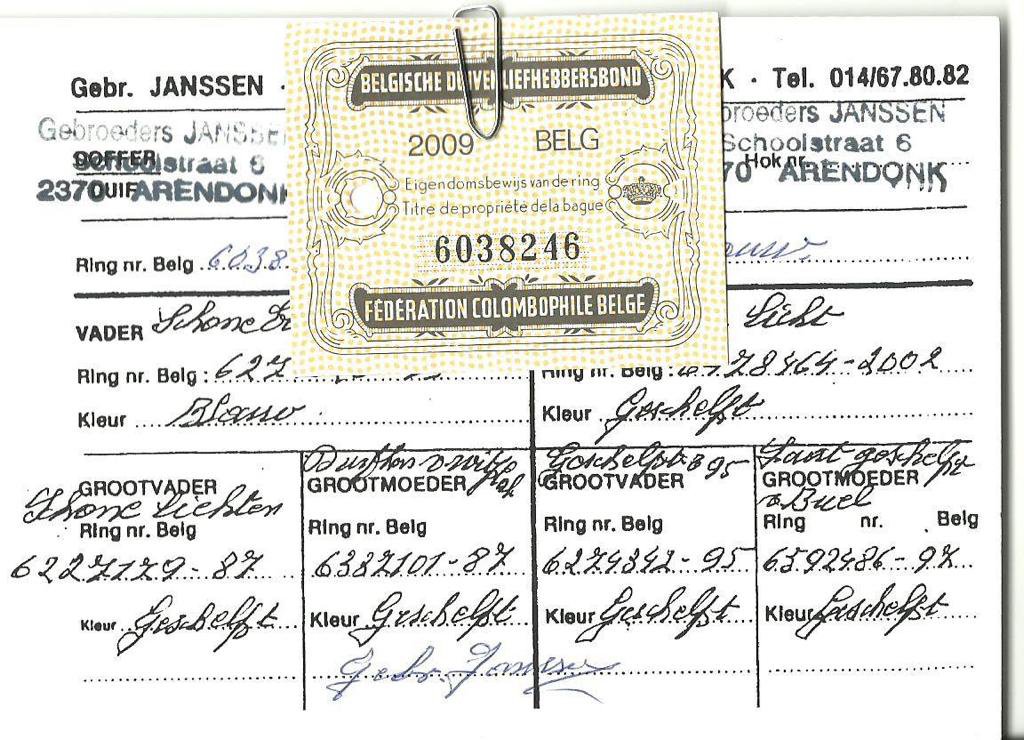 Gebr. JANSSEN · K · Tel. 014/67.80.82
Gebroeders JANSSEN
Schoolstraat 6
2370 ARENDONK
DOFFER
DUIF
BELGISCHE DUIVENLIEFHEBBERSBOND
2009 BELG
Eigendomsbewijs van de ring
Titre de propriéte de la bague
6038246
FÉDÉRATION COLOMBOPHILE BELGE
broeders JANSSEN
Schoolstraat 6
70 ARENDONK
Hok nr.
Ring nr. Belg 6038
VADER Schone
Licht
Ring nr. Belg : 627
Ring nr. Belg : 78464-2002
Kleur Blauw
Kleur Geschelpt
GROOTVADER
Schone Lichten
Ring nr. Belg
6227179-87
Kleur Geschelpt
GROOTMOEDER
Ring nr. Belg
6387101-87
Kleur Geschelpt
Geschelpte 95
GROOTVADER
Ring nr. Belg
6274342-95
Kleur Geschelpt
GROOTMOEDER
Ring nr. Belg
6592486-97
Kleur Geschelpt
Gebr. Janssen